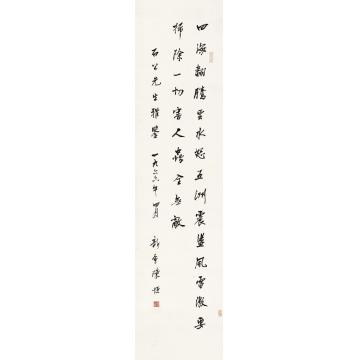 四海翻腾云水怒五洲震荡风雷激要
扫除一切害人虫全无敌
石公先生雅鉴 一九六六年四月 新会陈垣